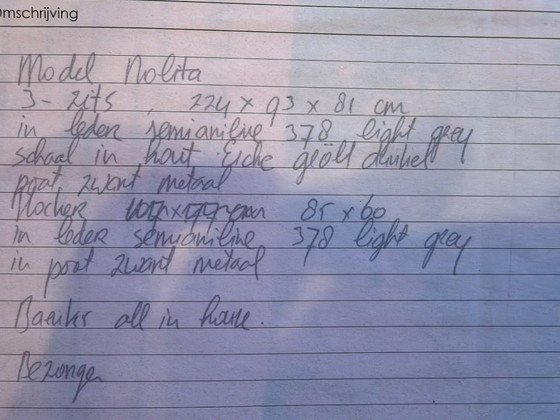 Omschrijving
Model Nolita
3-zits, 224 x 93 x 81 cm
in leder semianiline 378 light grey
schaal in hout Eiche geölt dunkel
poot zwart metaal
Hocker 85 x 60
in leder semianiline 378 light grey
in poot zwart metaal
all in